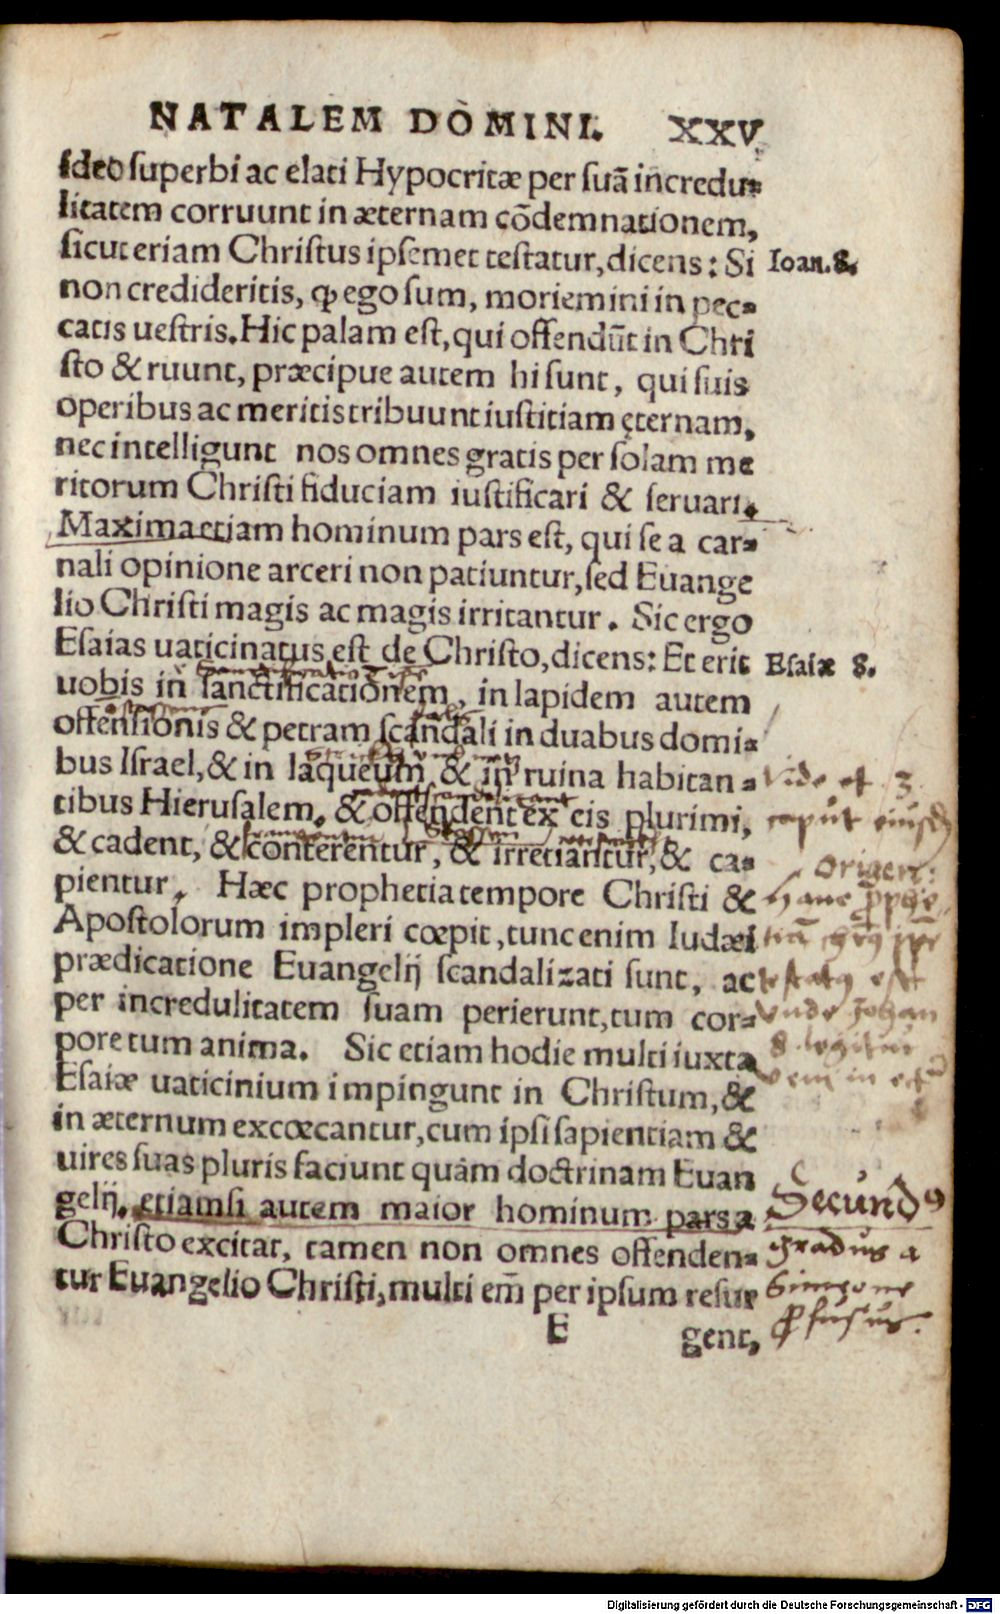 NATALEM DOMINI. XXV.
ideo superbi ac elati Hypocritæ per suã incredu-
litatem corruunt in æternam cõdemnationem,
sicut etiam Christus ipsemet testatur, dicens: Si
Ioan. 8.
non credideritis, ꝙ ego sum, moriemini in pec-
catis uestris. Hic palam est, qui offendũt in Chri
sto & ruunt, præcipue autem hi sunt, qui suis
operibus ac meritis tribuunt iustitiam ęternam,
nec intelligunt nos omnes gratis per solam me
ritorum Christi fiduciam iustificari & seruari.
Maxima etiam hominum pars est, qui se a car-
nali opinione arceri non patiuntur, sed Euange
lio Christi magis ac magis irritantur. Sic ergo
Esaias uaticinatus est de Christo, dicens: Et erit
Esaiæ 8.
uobis in sanctificationem, in lapidem autem
offensionis & petram scandali in duabus domi-
bus Israel, & in laqueum & in ruina habitan-
Vide et 3
tibus Hierusalem. & offendent ex eis plurimi,
caput
& cadent, & conterentur, & irretiantur, & ca-
origen:
pientur. Hæc prophetia tempore Christi &
Apostolorum impleri cœpit, tunc enim Iudæi
prædicatione Euangelij scandalizati sunt, ac
est
per incredulitatem suam perierunt, tum cor-
unde Johan
pore tum anima. Sic etiam hodie multi iuxta
8 legitur
Esaiæ uaticinium impingunt in Christum, &
in æternum excœcantur, cum ipsi sapientiam &
uires suas pluris faciunt quàm doctrinam Euan
gelij. etiamsi autem maior hominum pars a
Secundꝰ
Christo excitat, tamen non omnes offenden-
gradus a
tur Euangelio Christi, multi em̃ per ipsum resur
Simeone
E gent,